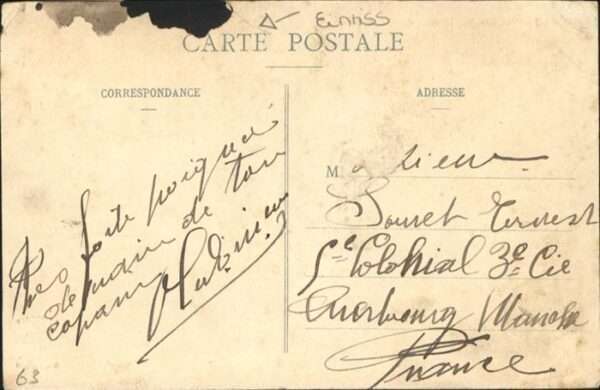 Einhss
CARTE POSTALE
CORRESPONDANCE
Très forte poignée
de main de ton
copain
ADRESSE
Monsieur
Ernest
5e Colonial 3e Cie
Cherbourg Manche
France
63